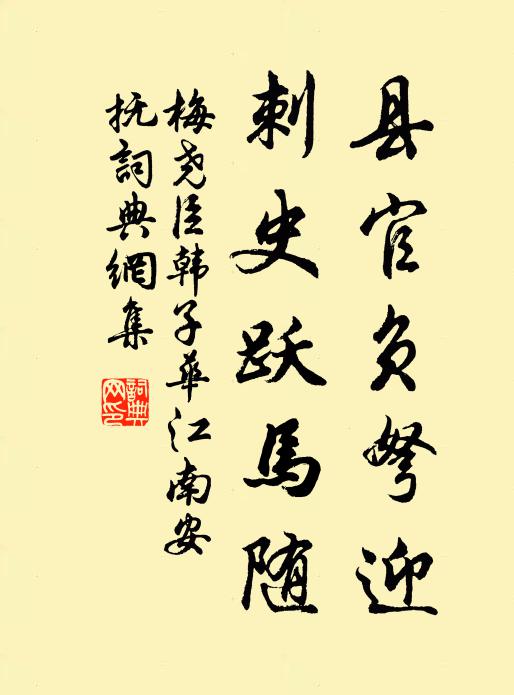 县官负弩迎
刺史跃马随
梅尧臣韩子华江南安
抚詞典網集
詞典
网印